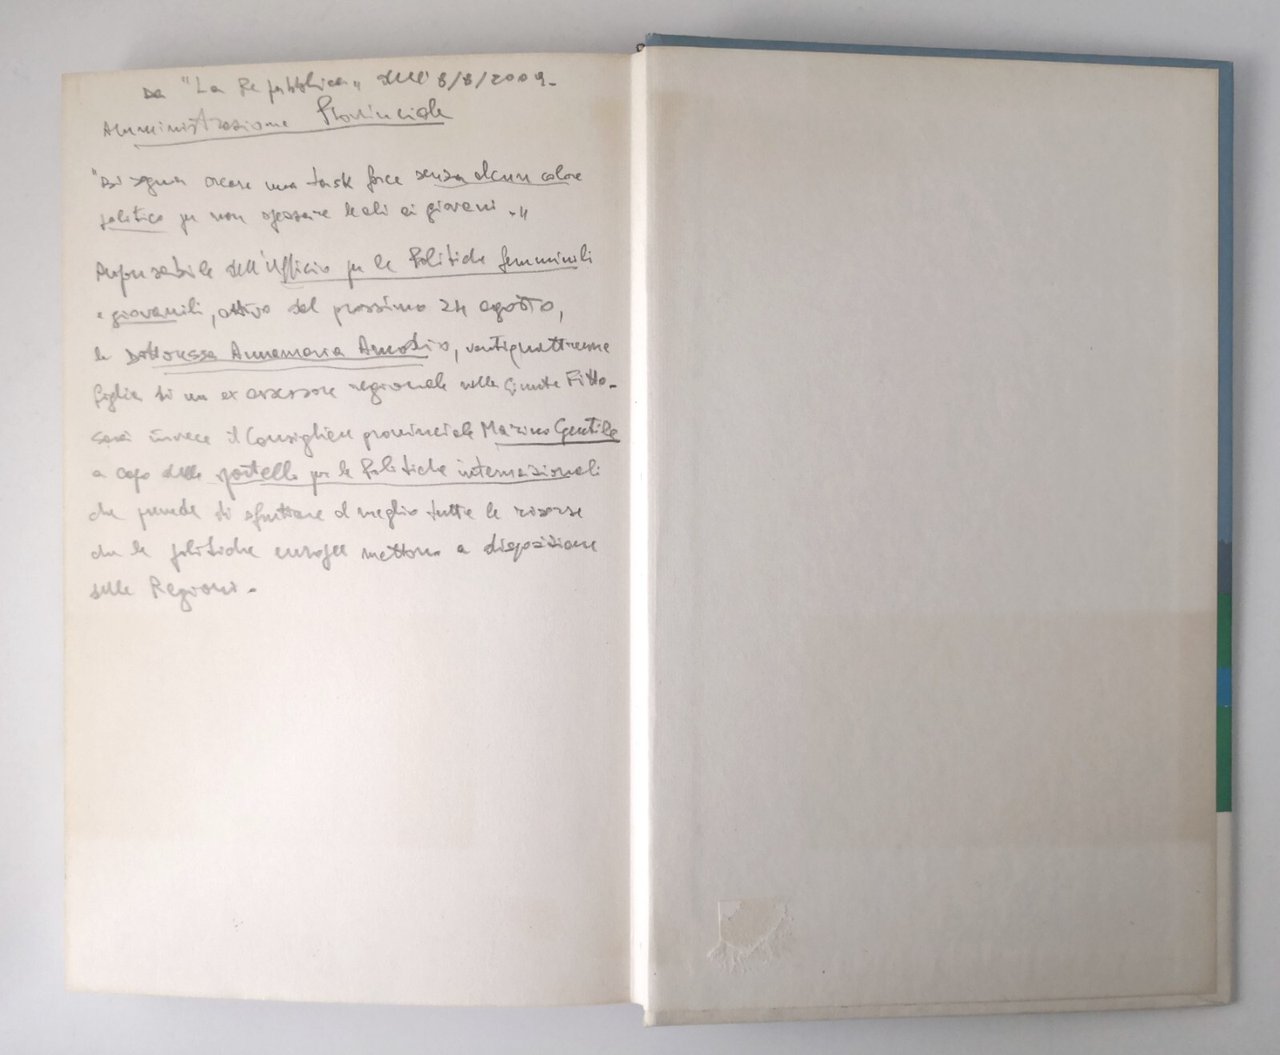 Da "La Repubblica" dell'8/8/2009.
Amministrazione Provinciale
"Bisogna creare una task force senza alcun colore
politico per non spezzare le ali ai giovani."
Responsabile dell'Ufficio per le Politiche femminili
e giovanili, attivo dal prossimo 24 agosto,
la Dottoressa Annamaria Amodio, ventiquattrenne
figlia di un ex assessore regionale nella Giunta Fitto.
Sarà invece il Consigliere provinciale Marino Gentile
a capo dello sportello per le Politiche internazionali
che prevede di sfruttare al meglio tutte le risorse
che le politiche europee mettono a disposizione
delle Regioni.